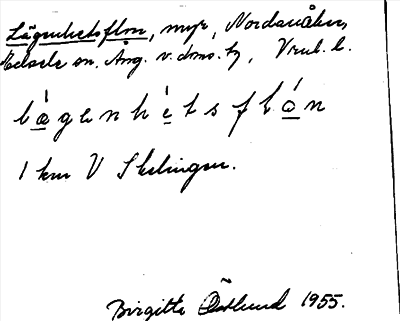 Lägenhetsflon, myr, Nordanåker,
Edsele sn. Ång. v. dms. hd,
lägenhetsflon
1 km V Skelingen.
Birgitta Östlund 1955.